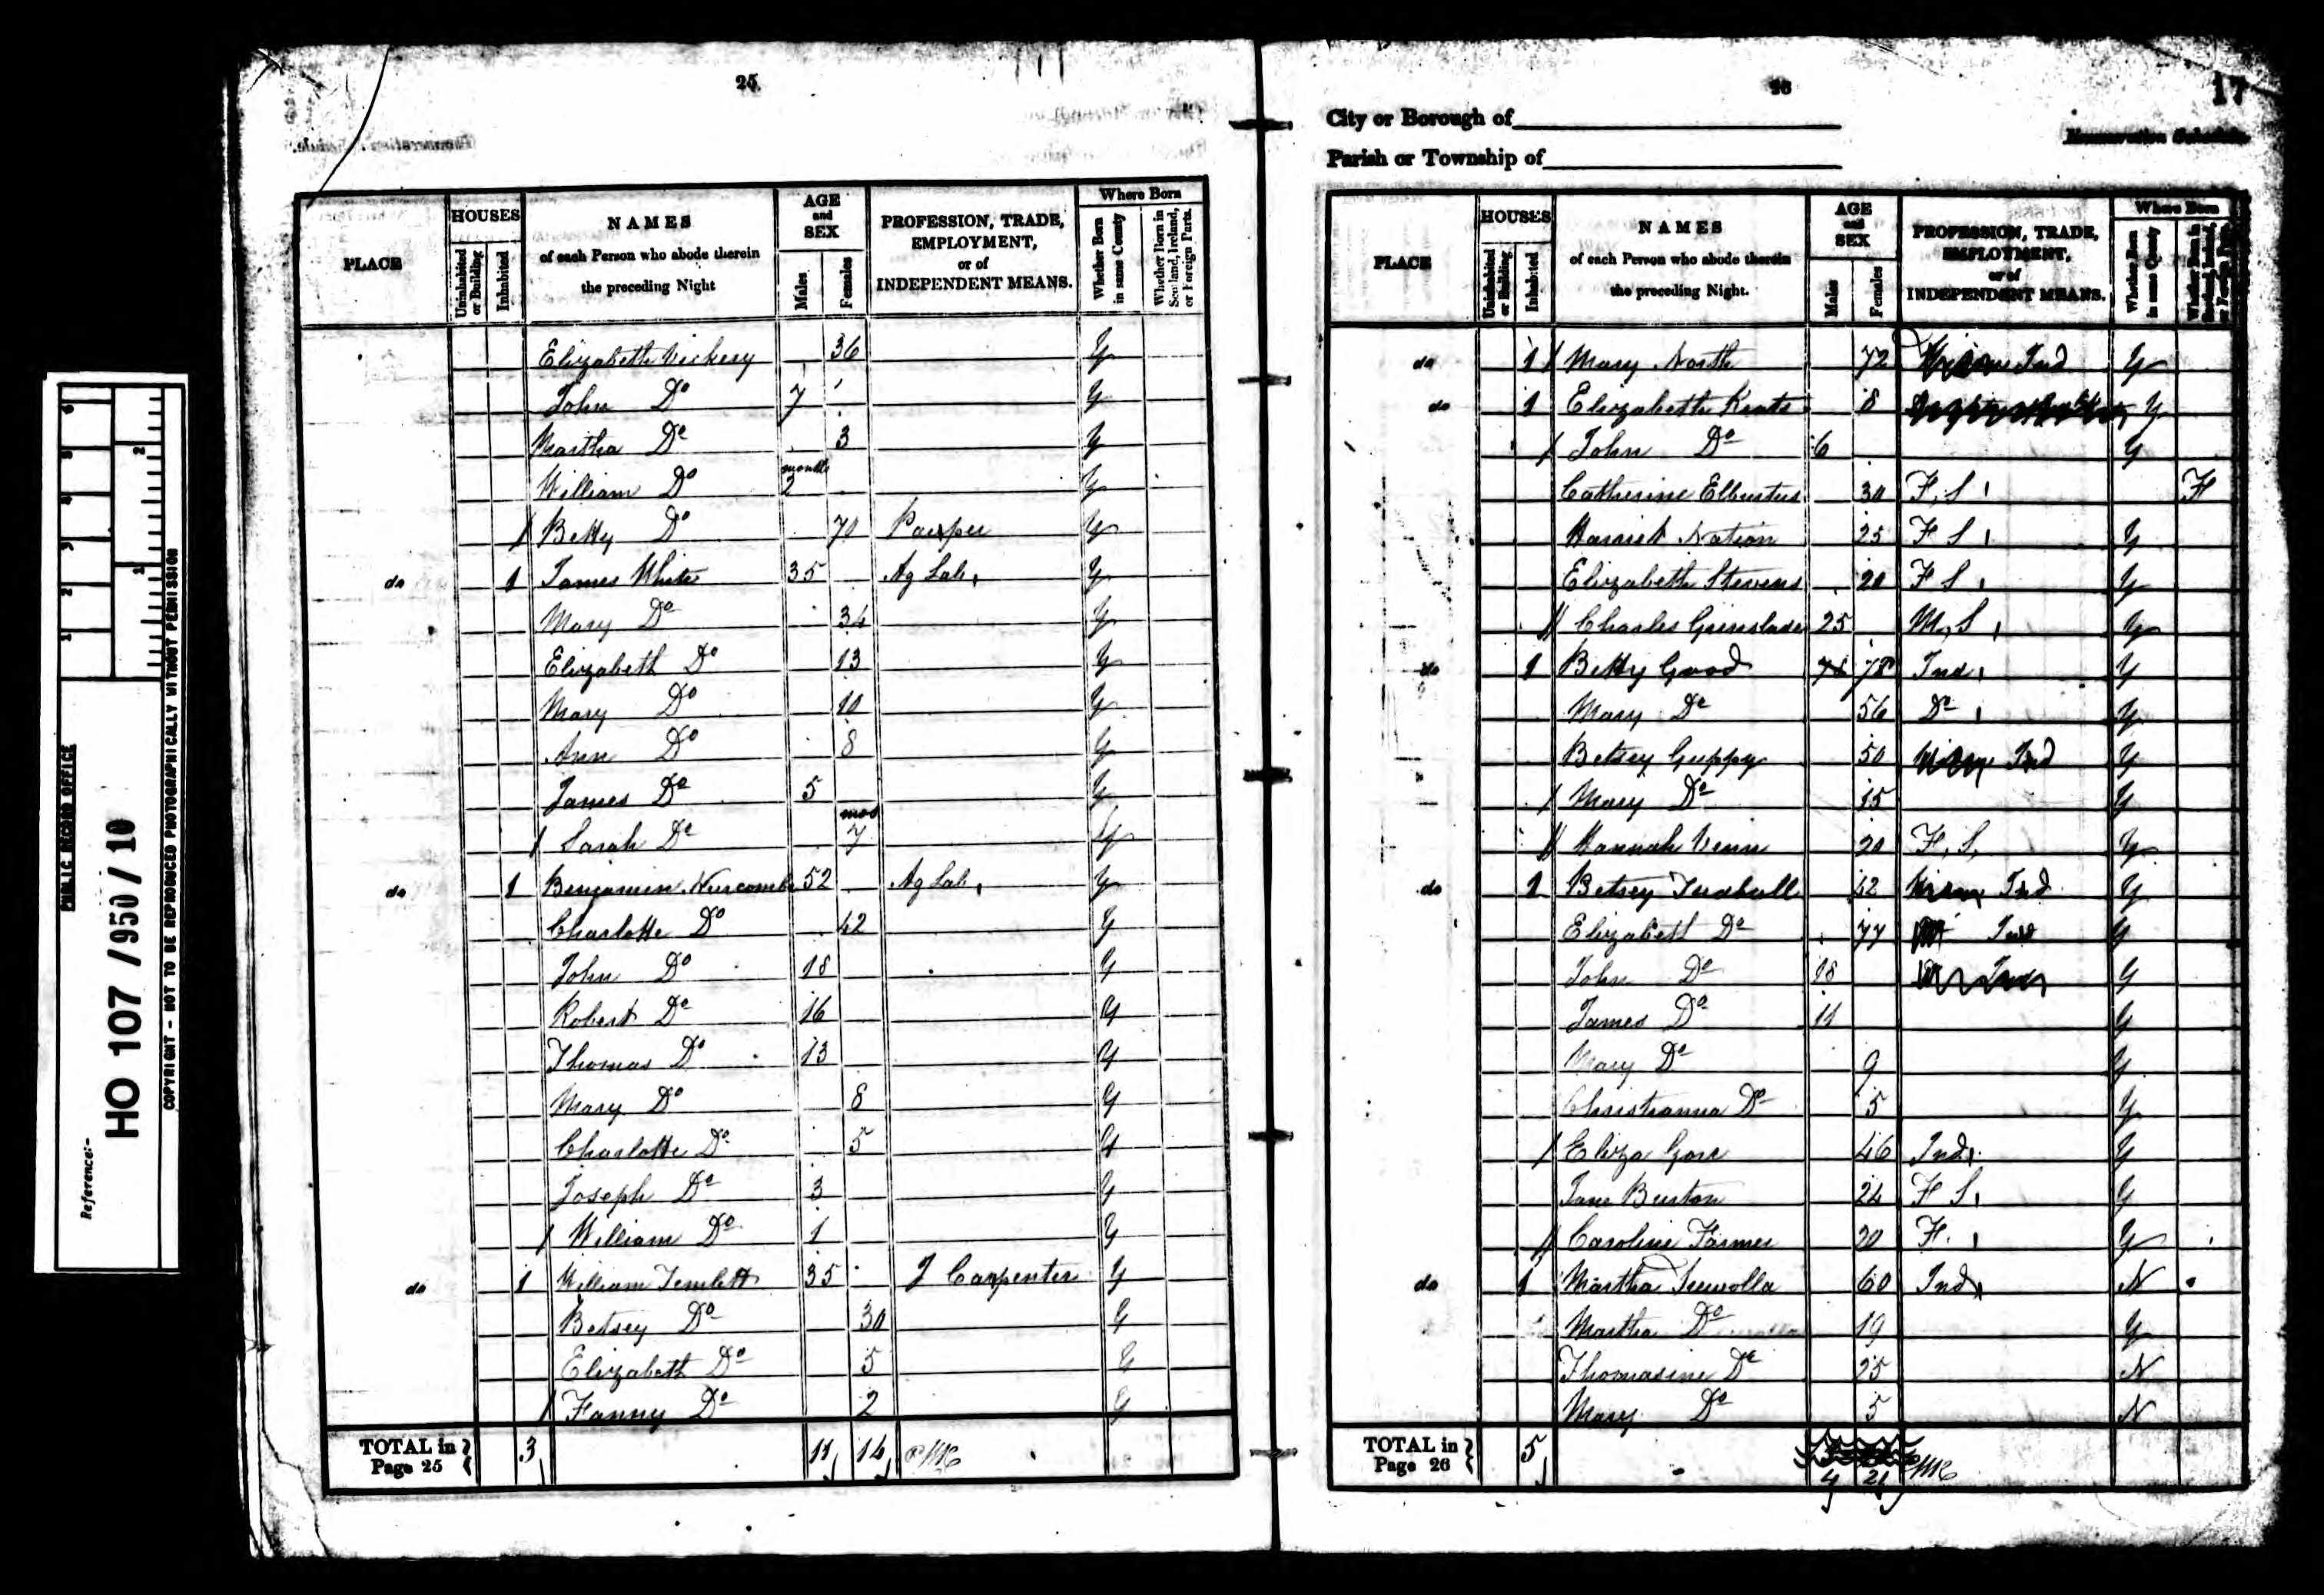 25
PLACE
HOUSES
Uninhabited or Building
Inhabited
NAMES
of each Person who abode therein
the preceding Night
AGE
and
SEX
Males
Females
PROFESSION, TRADE,
EMPLOYMENT,
or of
INDEPENDENT MEANS.
Where Born
Whether Born in same County
Whether Born in Scotland, Ireland, or Foreign Parts.
Elizabeth Vickery 36 Y
John Do 7 Y
Martha Do 3 Y
William Do months 2 Y
Betty Do 70 Pauper Y
do 1 James White 35 Ag Lab Y
Mary Do 34 Y
Elizabeth Do 13 Y
Mary Do 10 Y
Ann Do 8 Y
James Do 5 Y
Sarah Do mos 7 Y
do 1 Benjamin Nurcombe 52 Ag Lab Y
Charlotte Do 42 Y
John Do 18 Y
Robert Do 16 Y
Thomas Do 13 Y
Mary Do 8 Y
Charlotte Do 5 Y
Joseph Do 3 Y
William Do 1 Y
do 1 William Temlett 35 J Carpenter Y
Betsey Do 30 Y
Elizabeth Do 5 Y
Fanny Do 2 Y
TOTAL in Page 25 3 11 14
26
17
City or Borough of
Parish or Township of
Enumeration Schedule.
PLACE
HOUSES
Uninhabited or Building
Inhabited
NAMES
of each Person who abode therein
the preceding Night.
AGE
and
SEX
Males
Females
PROFESSION, TRADE,
EMPLOYMENT,
or of
INDEPENDENT MEANS.
Where Born
Whether Born in same County
Whether Born in Scotland, Ireland, or Foreign Parts.
do 1 Mary North 72 Ind Y
do 1 Elizabeth Keats 8 Y
John Do 6 Y
Catherine 30 F. S F
Harriet Nation 25 F S Y
Elizabeth Stevens 20 F S Y
Charles Grenslade 25 M. S Y
do 1 Betty Good 78 78 Ind Y
Mary Do 56 Do Y
Betsey Guppy 50 Ind Y
Mary Do 15 Y
Hannah Venn 20 F. S. Y
do 1 Betsey Tudball 42 Ind Y
Elizabeth Do 77 Ind Y
John Do 18 Y
James Do 11 Y
Mary Do 9 Y
Christianna Do 5 Y
Eliza Gore 46 Ind Y
Jane Burston 24 F S Y
Caroline Farmer 20 F. Y
do 1 Martha 60 Ind N
Martha Do 19 Y
Thomasine Do 25 N
Mary Do 5 N
TOTAL in Page 26 5 4 21
PUBLIC RECORD OFFICE
Reference:-
HO 107 / 950 / 10
COPYRIGHT - NOT TO BE REPRODUCED PHOTOGRAPHICALLY WITHOUT PERMISSION
1 2 3 4 5 6
1 2